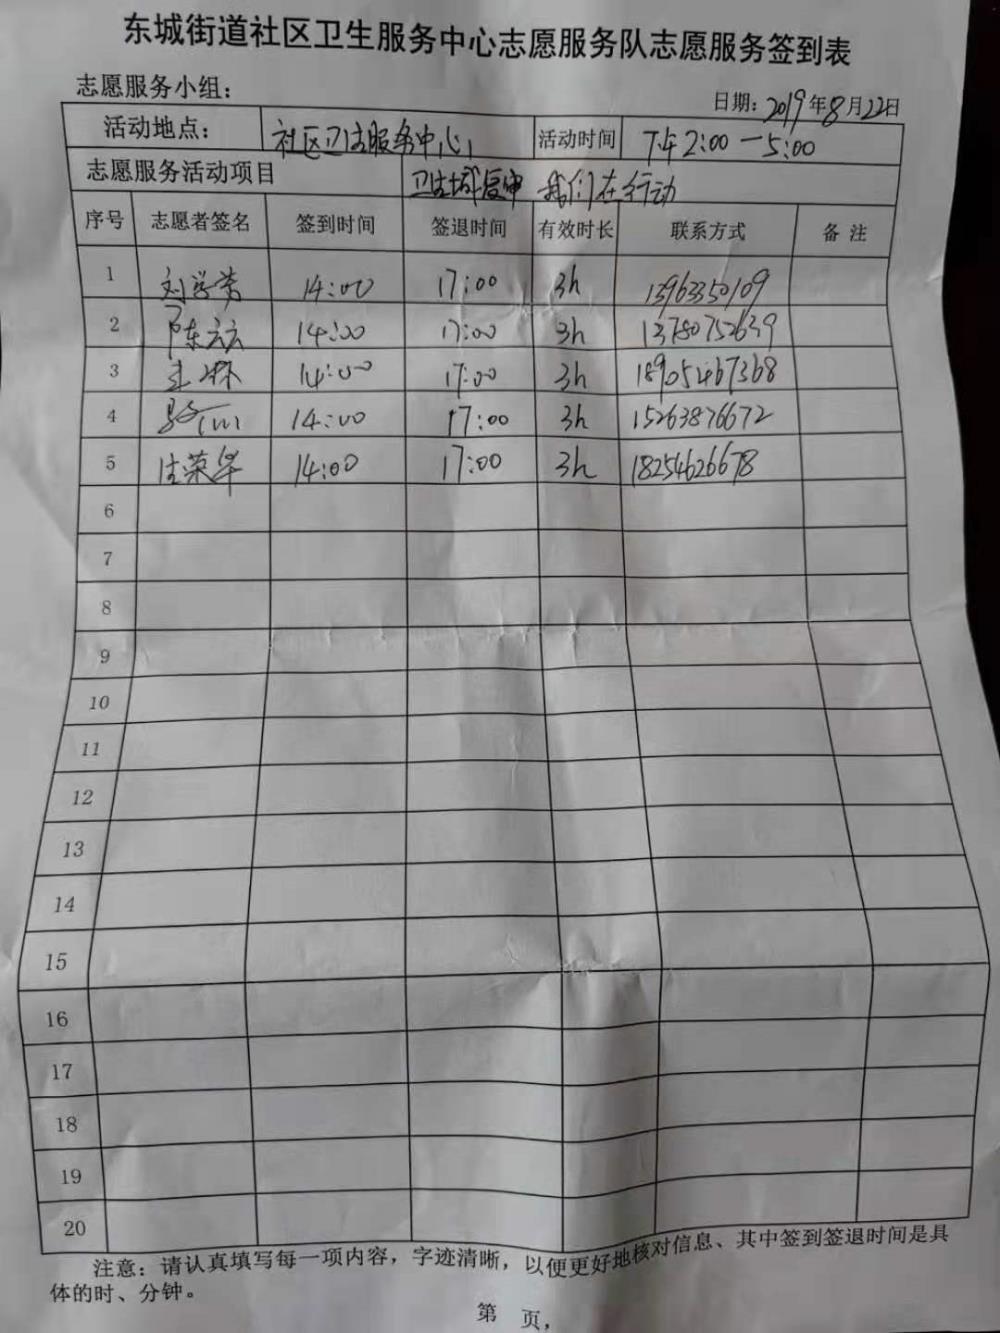 东城街道社区卫生服务中心志愿服务队志愿服务签到表
志愿服务小组：
日期：2019年8月22日
活动地点： 社区卫生服务中心 活动时间 下午2:00—5:00
志愿服务活动项目 卫生城复审 我们在行动
序号 志愿者签名 签到时间 签退时间 有效时长 联系方式 备 注
1 刘学芳 14:00 17:00 3h 13963350109
2 陈云云 14:00 17:00 3h 13780752639
3 王林 14:00 17:00 3h 18905467368
4 14:00 17:00 3h 15263876672
5 荣华 14:00 17:00 3h 18254626678
6
7
8
9
10
11
12
13
14
15
16
17
18
19
20
注意：请认真填写每一项内容，字迹清晰，以便更好地核对信息、其中签到签退时间是具
体的时、分钟。
第 页，